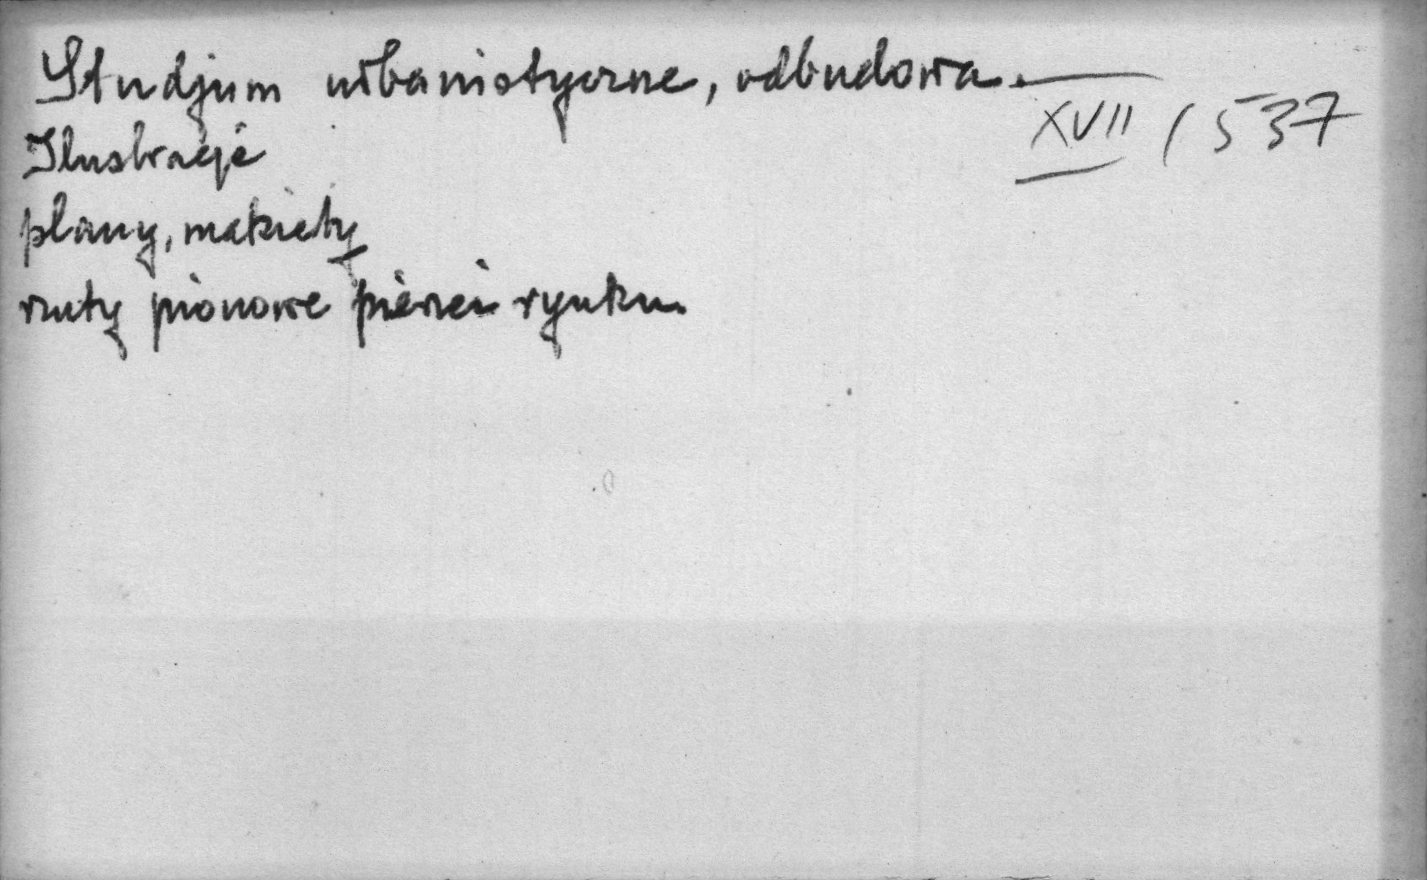 Studjum urbanistyczne, odbudowa. —
XVII / 537
Ilustracje
plany, makiety
rzuty pionowe pierzei rynku.